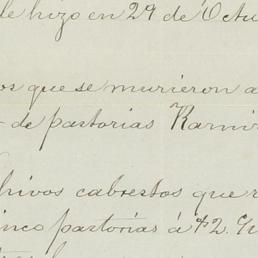 le hizo en 29 de Octu
os que se murieron a
- de pastorias Rami
hivos cabrestos que r
inco pastorias á $2.